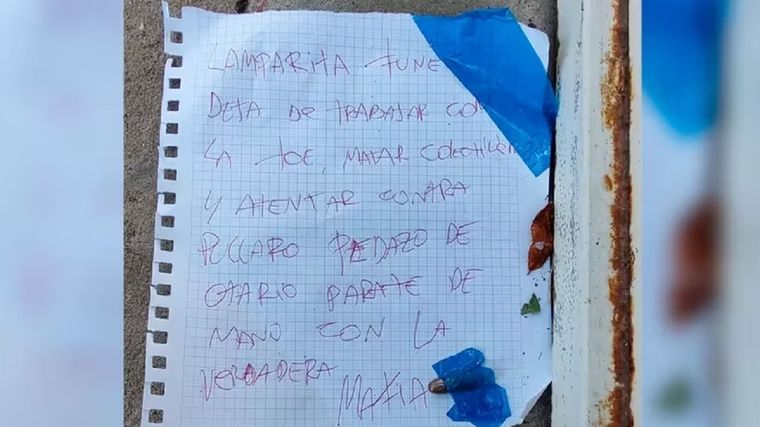 LAMPARITA TUNE
DEJA DE TRABAJAR CON
LA TOE, MATAR COLECTIVEROS
Y ATENTAR CONTRA
PUCCARO PEDAZO DE
OTARIO PARATE DE
MANO CON LA
VERDADERA
MAFIA